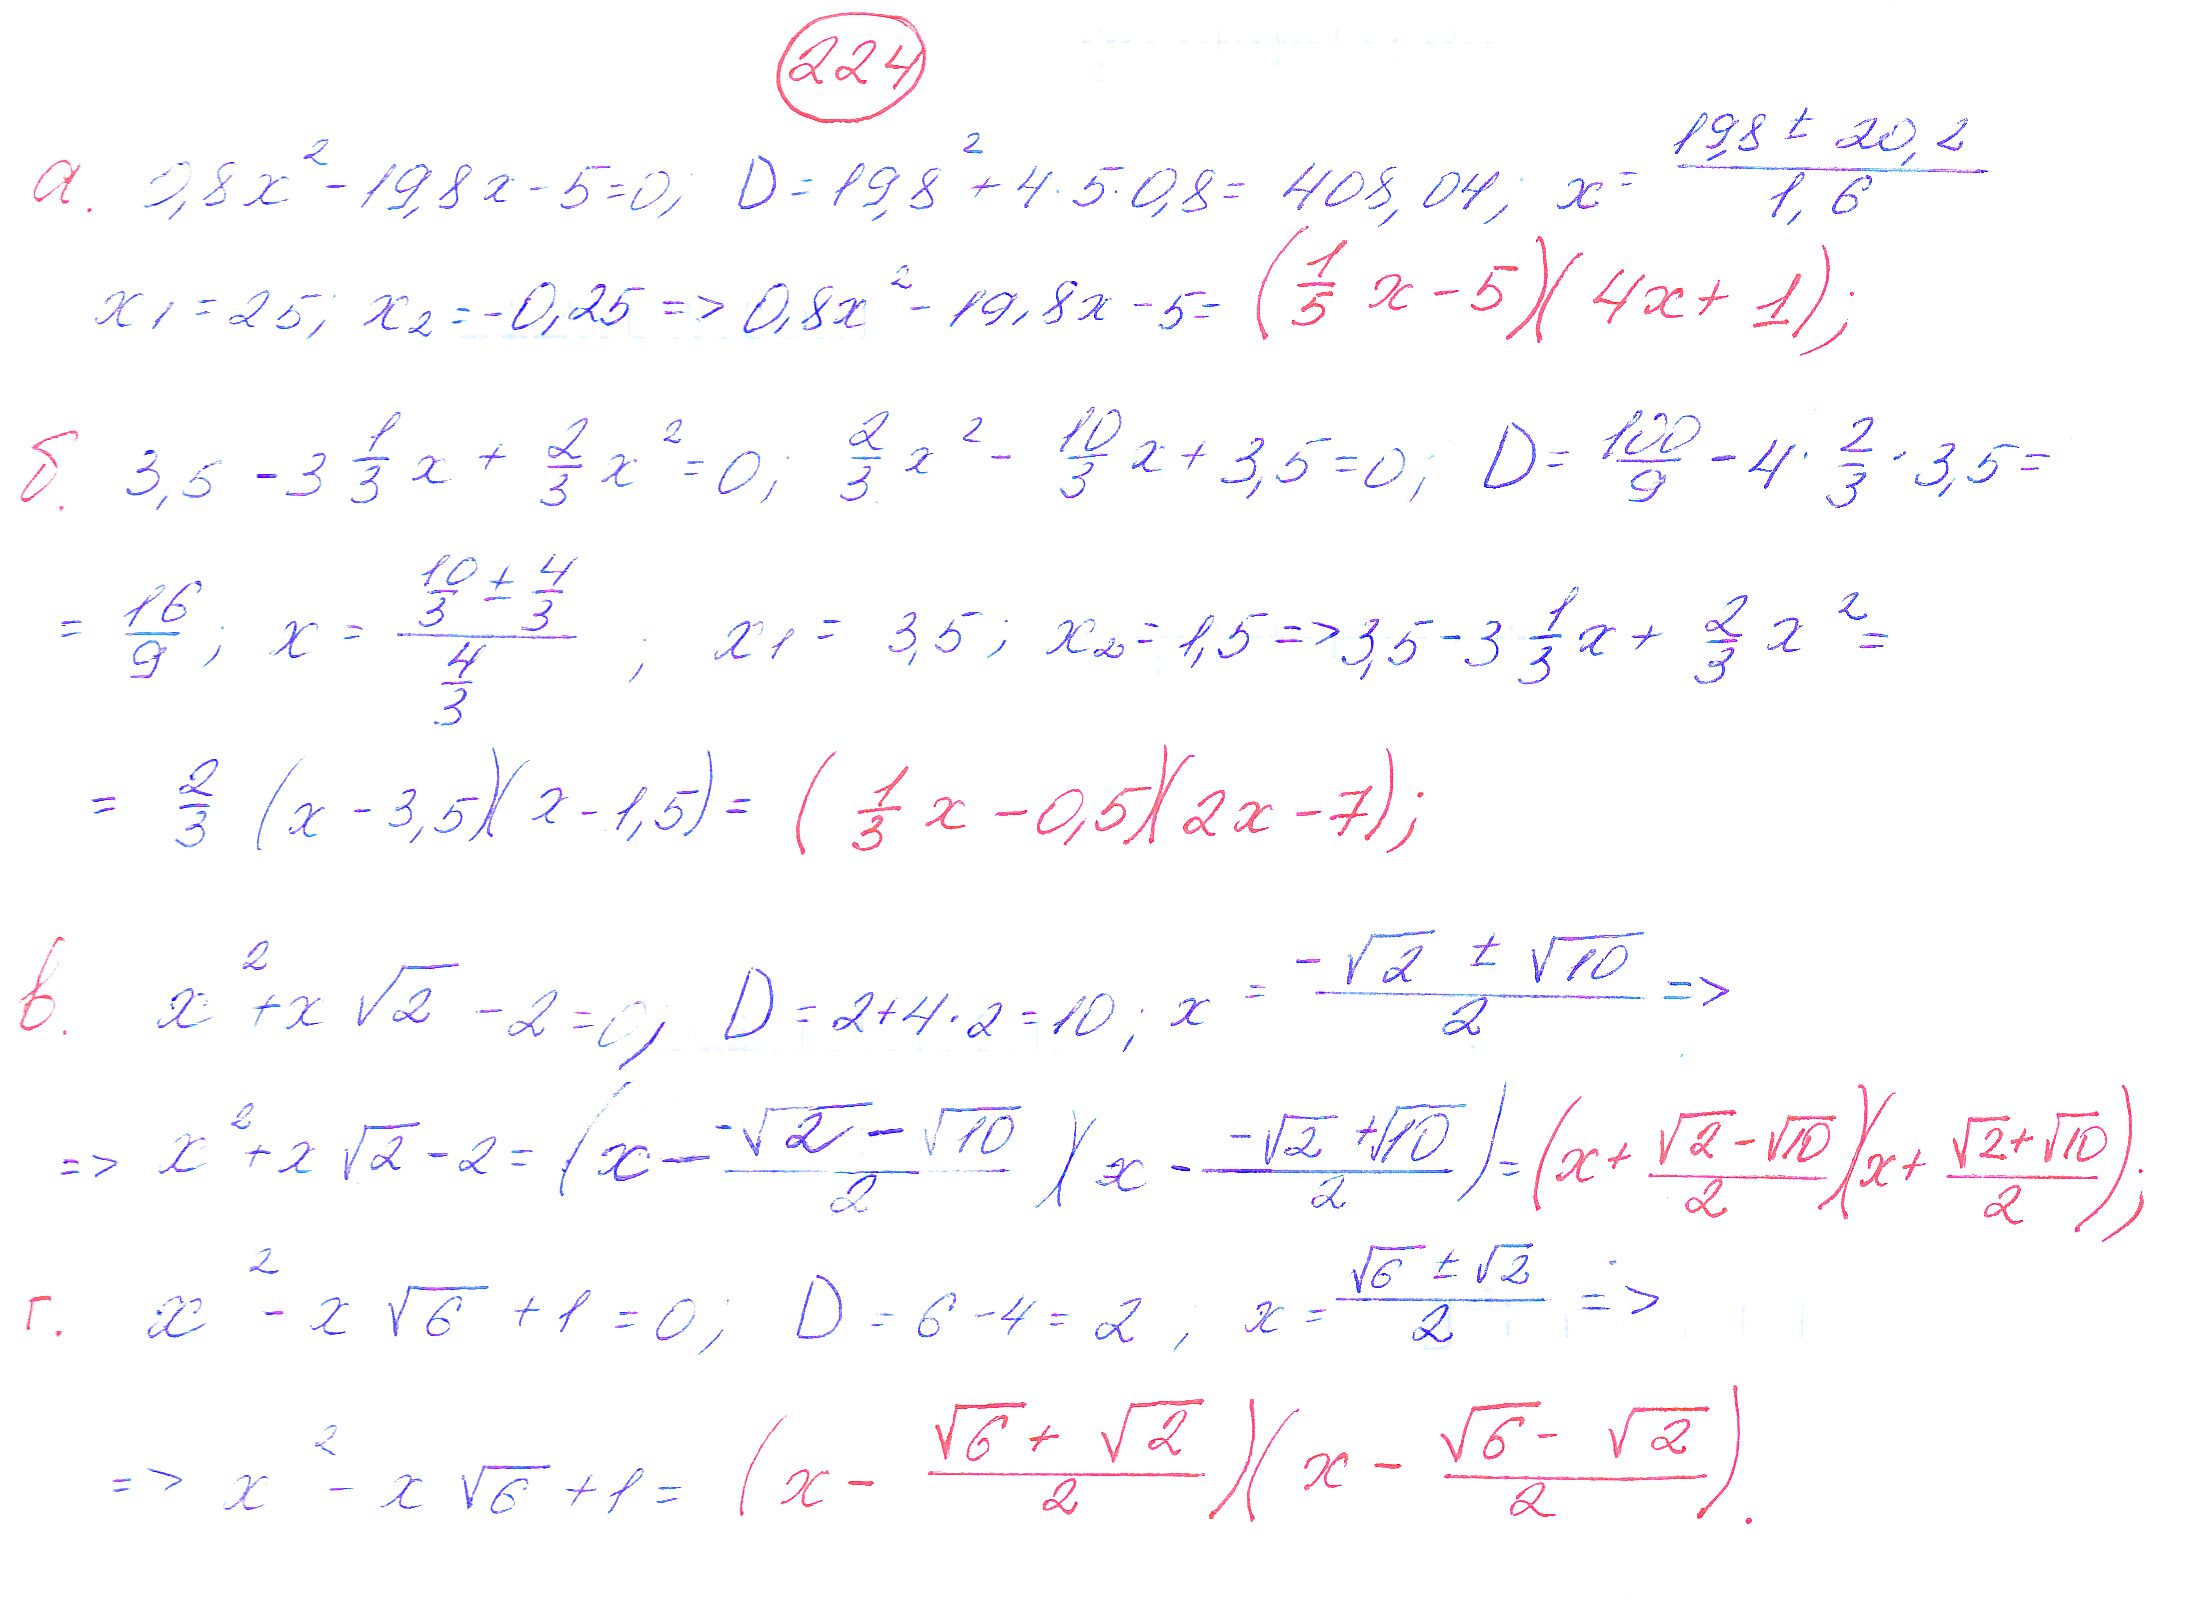 224
а. 0,8x² - 19,8x - 5 = 0; D = 19,8² + 4·5·0,8 = 408,04; x = (19,8 ± 20,2)/1,6
x₁ = 25; x₂ = -0,25 => 0,8x² - 19,8x - 5 = (1/5 x - 5)(4x + 1);
б. 3,5 - 3 1/3 x + 2/3 x² = 0; 2/3 x² - 10/3 x + 3,5 = 0; D = 100/9 - 4·2/3·3,5 =
= 16/9; x = (10/3 ± 4/3)/(4/3); x₁ = 3,5; x₂ = 1,5 => 3,5 - 3 1/3 x + 2/3 x² =
= 2/3 (x - 3,5)(x - 1,5) = (1/3 x - 0,5)(2x - 7);
в. x² + x√2 - 2 = 0; D = 2 + 4·2 = 10; x = (-√2 ± √10)/2 =>
=> x² + x√2 - 2 = (x - (-√2 - √10)/2)(x - (-√2 + √10)/2) = (x + (√2 - √10)/2)(x + (√2 + √10)/2);
г. x² - x√6 + 1 = 0; D = 6 - 4 = 2; x = (√6 ± √2)/2 =>
=> x² - x√6 + 1 = (x - (√6 + √2)/2)(x - (√6 - √2)/2).